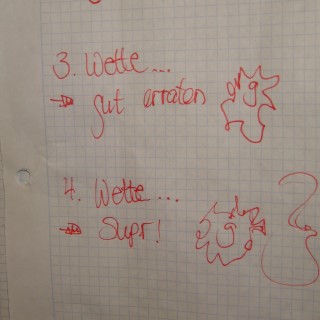 3. Wette...
gut erraten
4. Wette...
Supr!